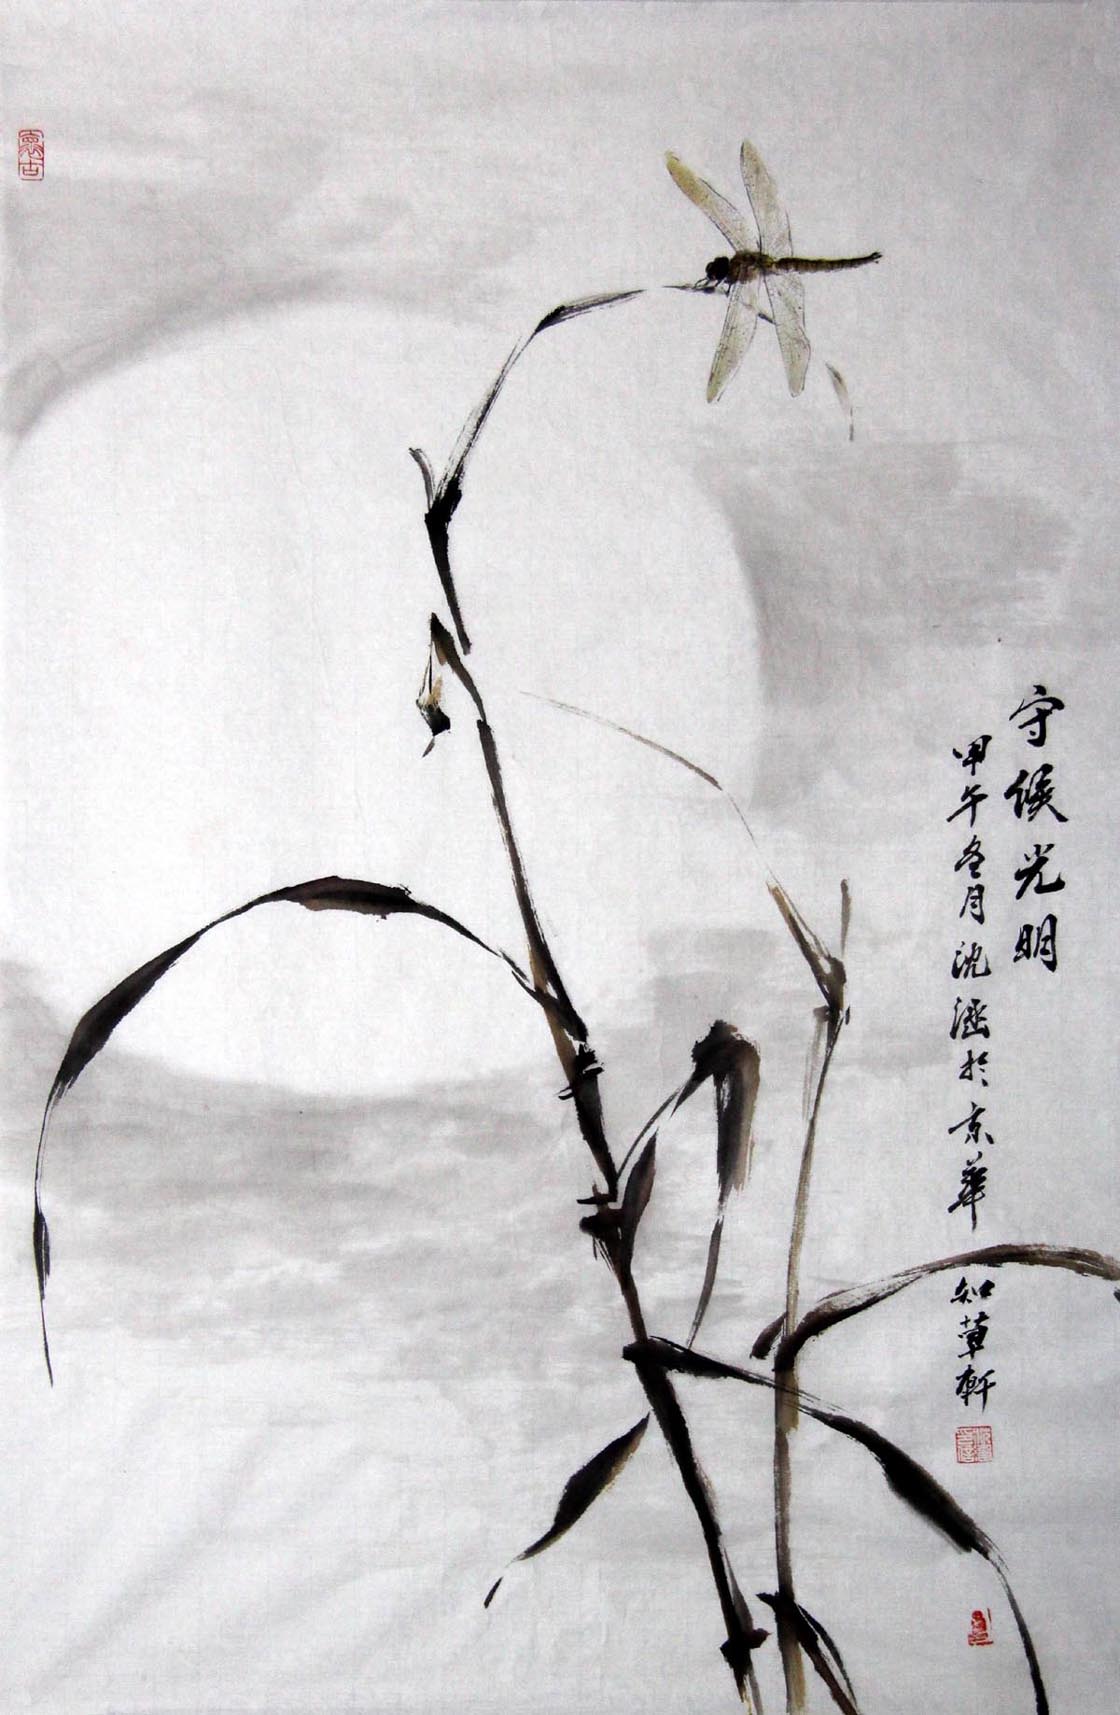 守候光明
甲午冬月沈涵於京華 知草軒
懷古